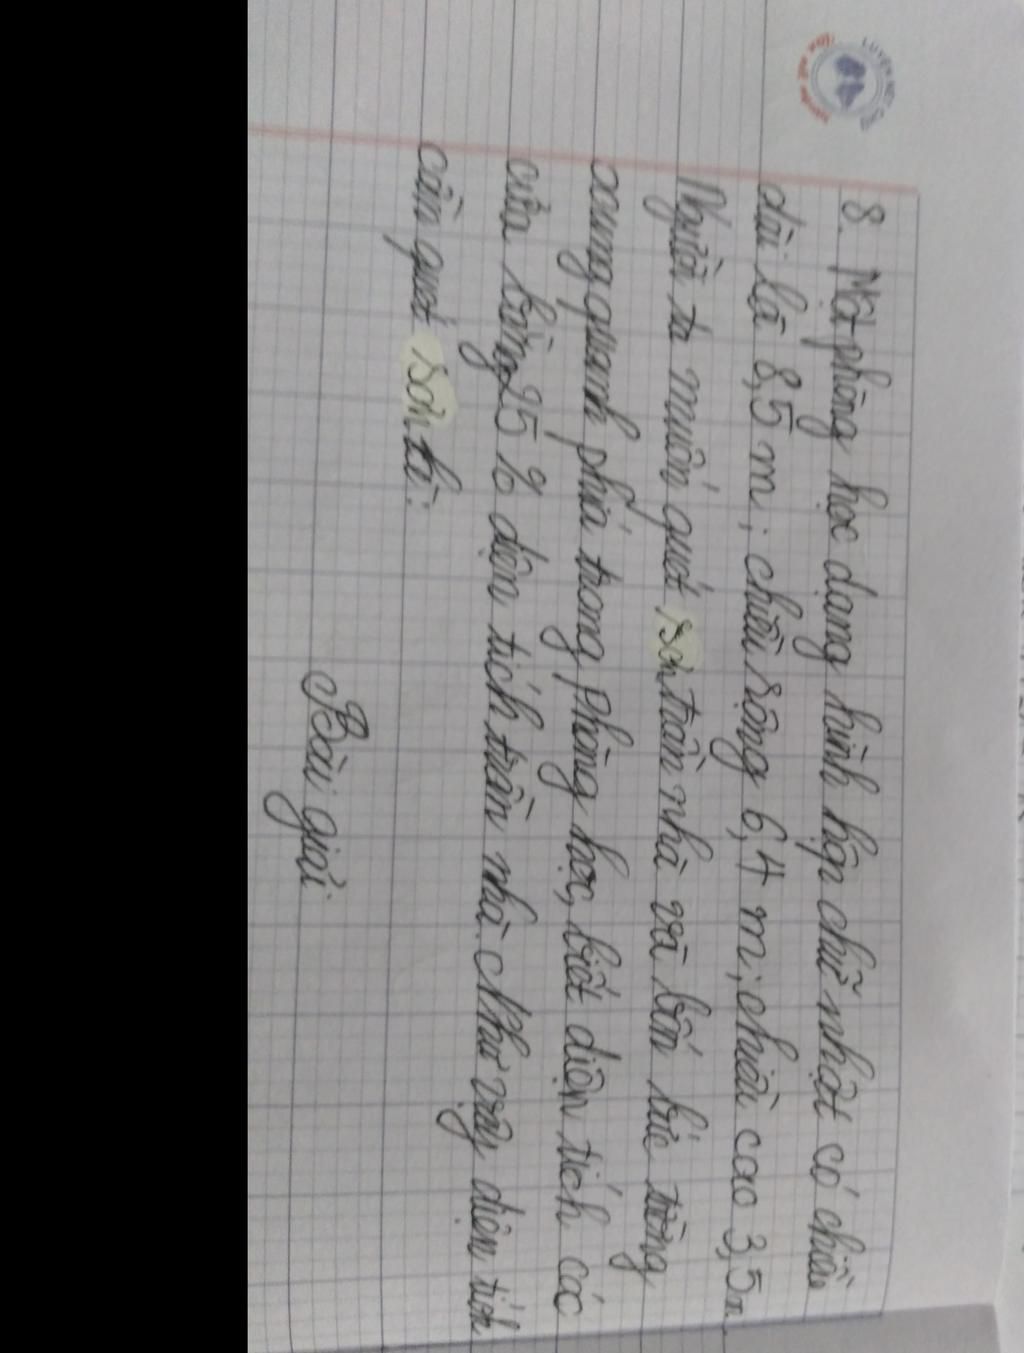 8. Một phòng học dạng hình hộp chữ nhật có chiều
dài là 8,5 m; chiều rộng 6,4 m; chiều cao 3,5m.
Người ta muốn quét sơn trần nhà và bốn bức tường
xung quanh phía trong phòng học, biết diện tích các
cửa bằng 25 % diện tích trần nhà. Như vậy diện tích
cần quét sơn là:
Bài giải